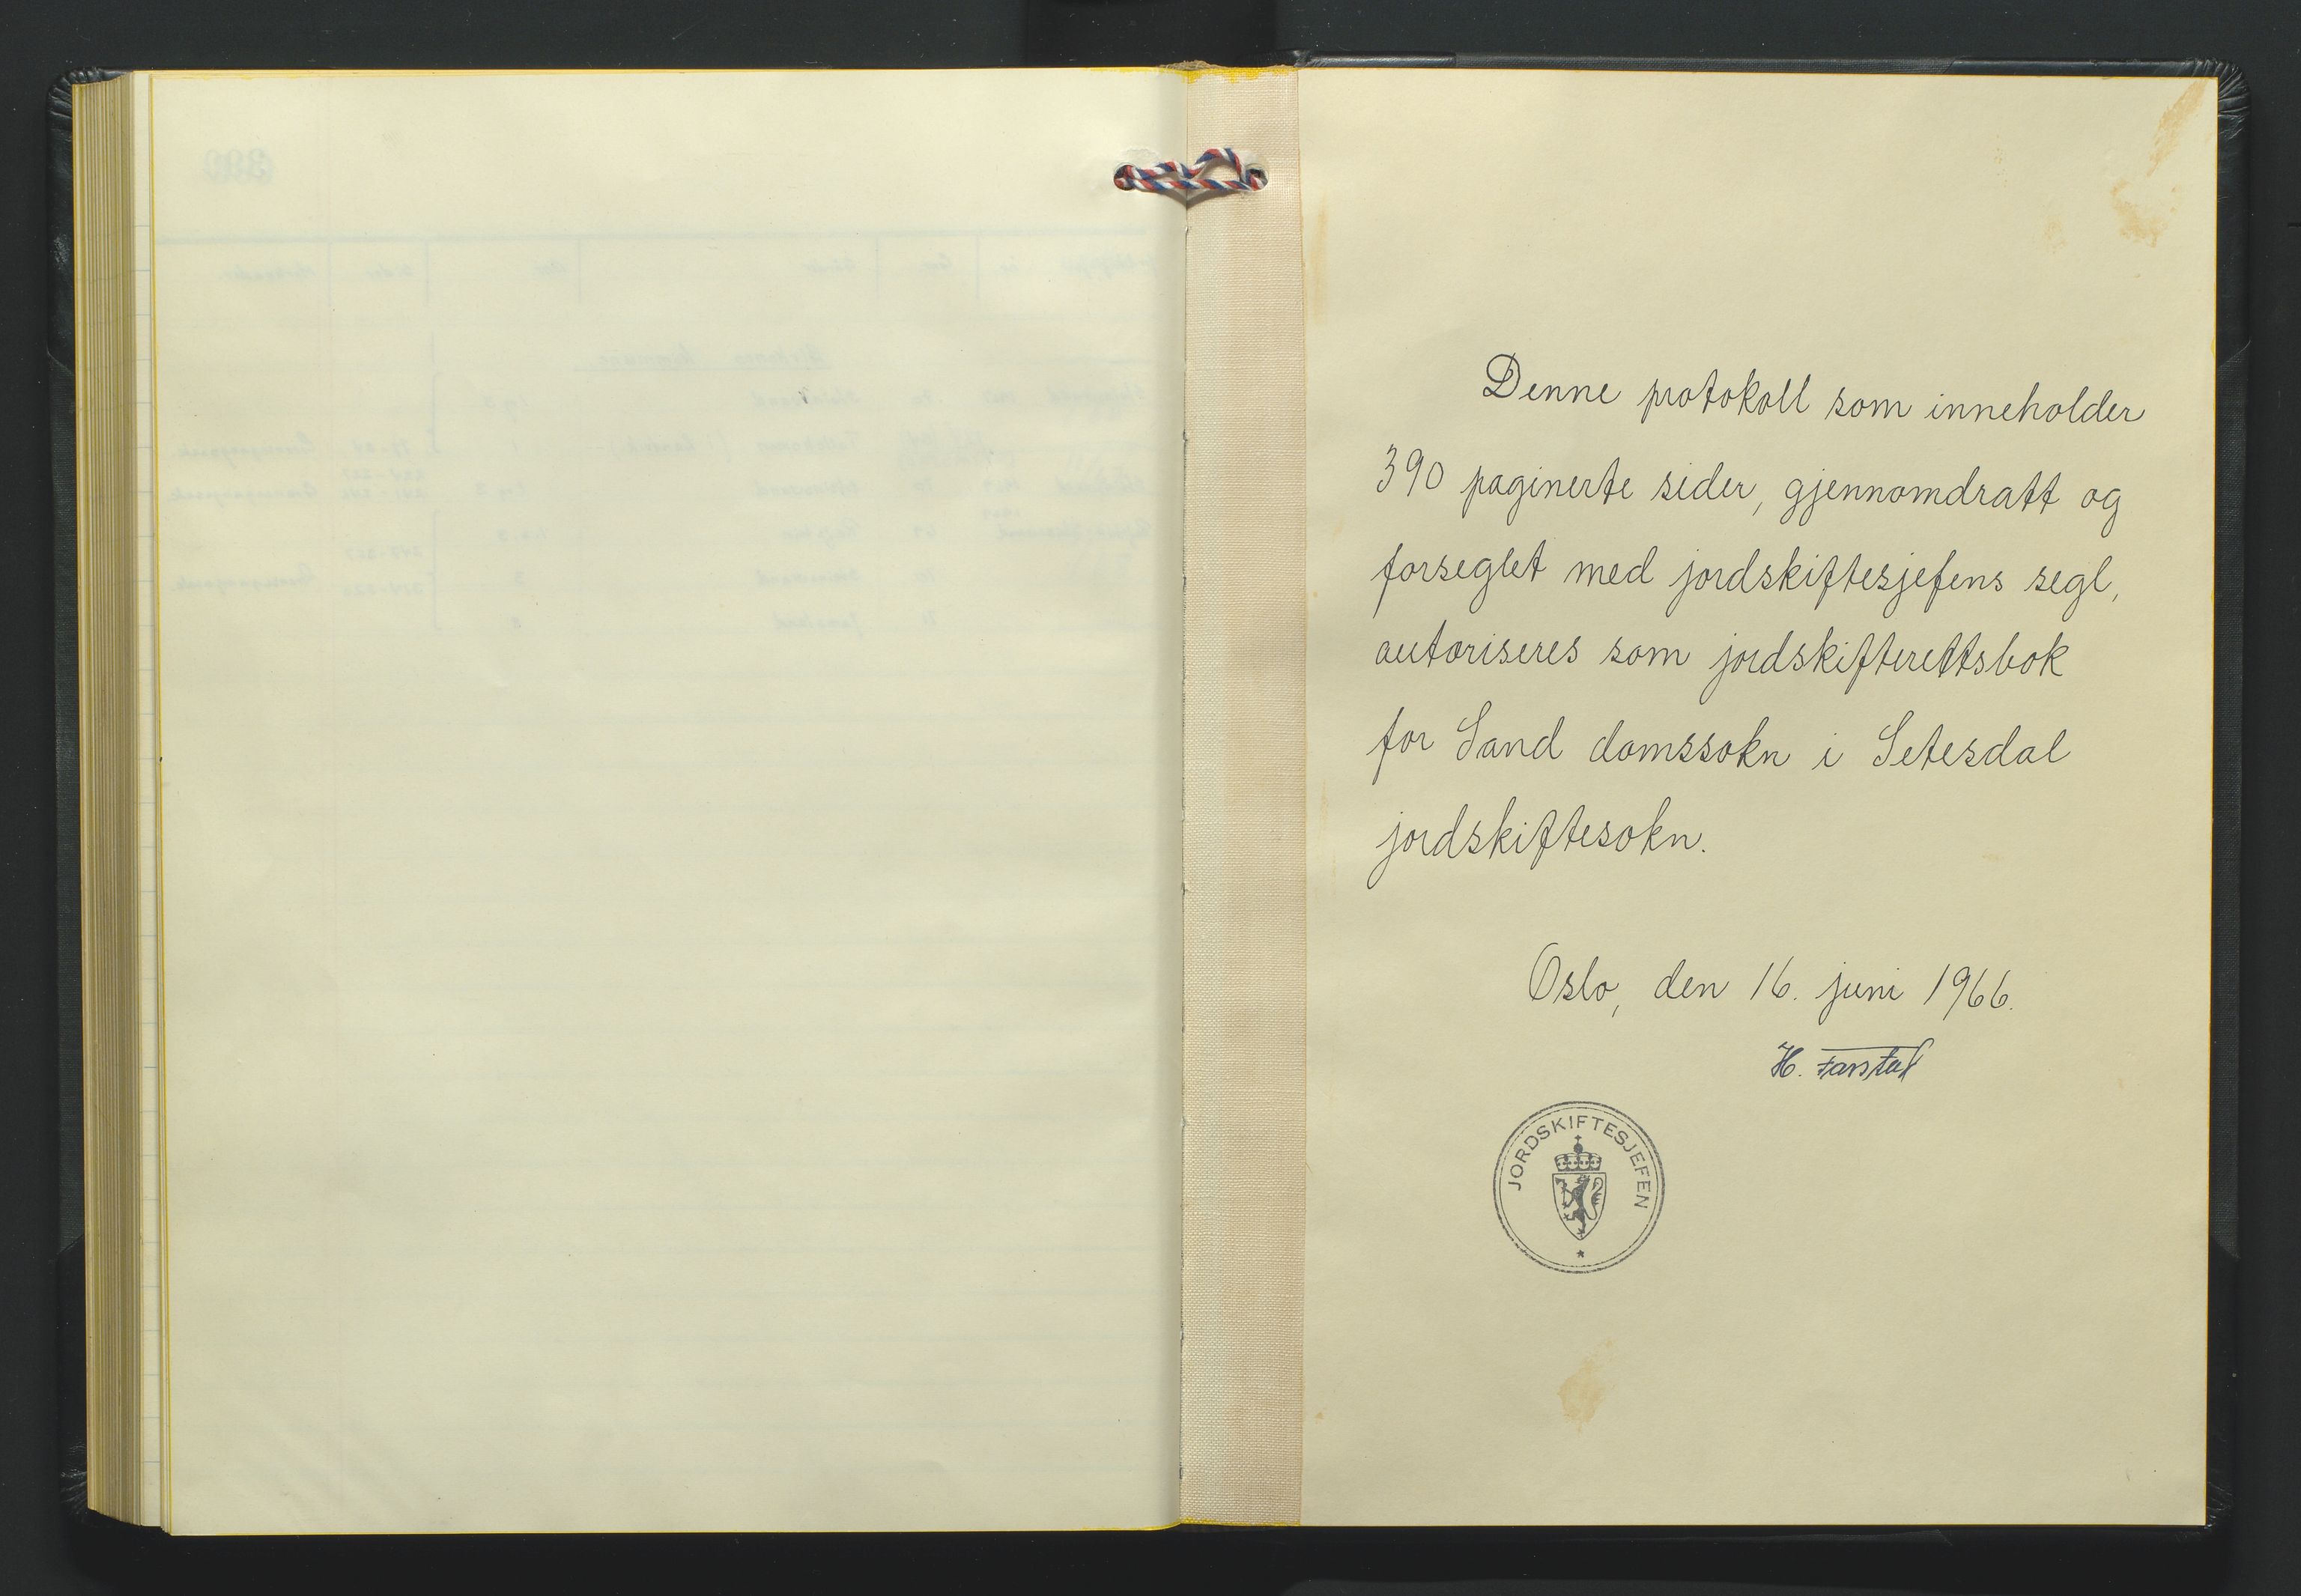 Denne protokoll som inneholder
390 paginerte sider, gjennomdratt og
forseglet med jordskiftesjefens segl,
autoriseres som jordskifterettsbok
for Sand domssokn i Setesdal
jordskiftesokn.
Oslo, den 16. juni 1966.
H. Farstad
JORDSKIFTESJEFEN